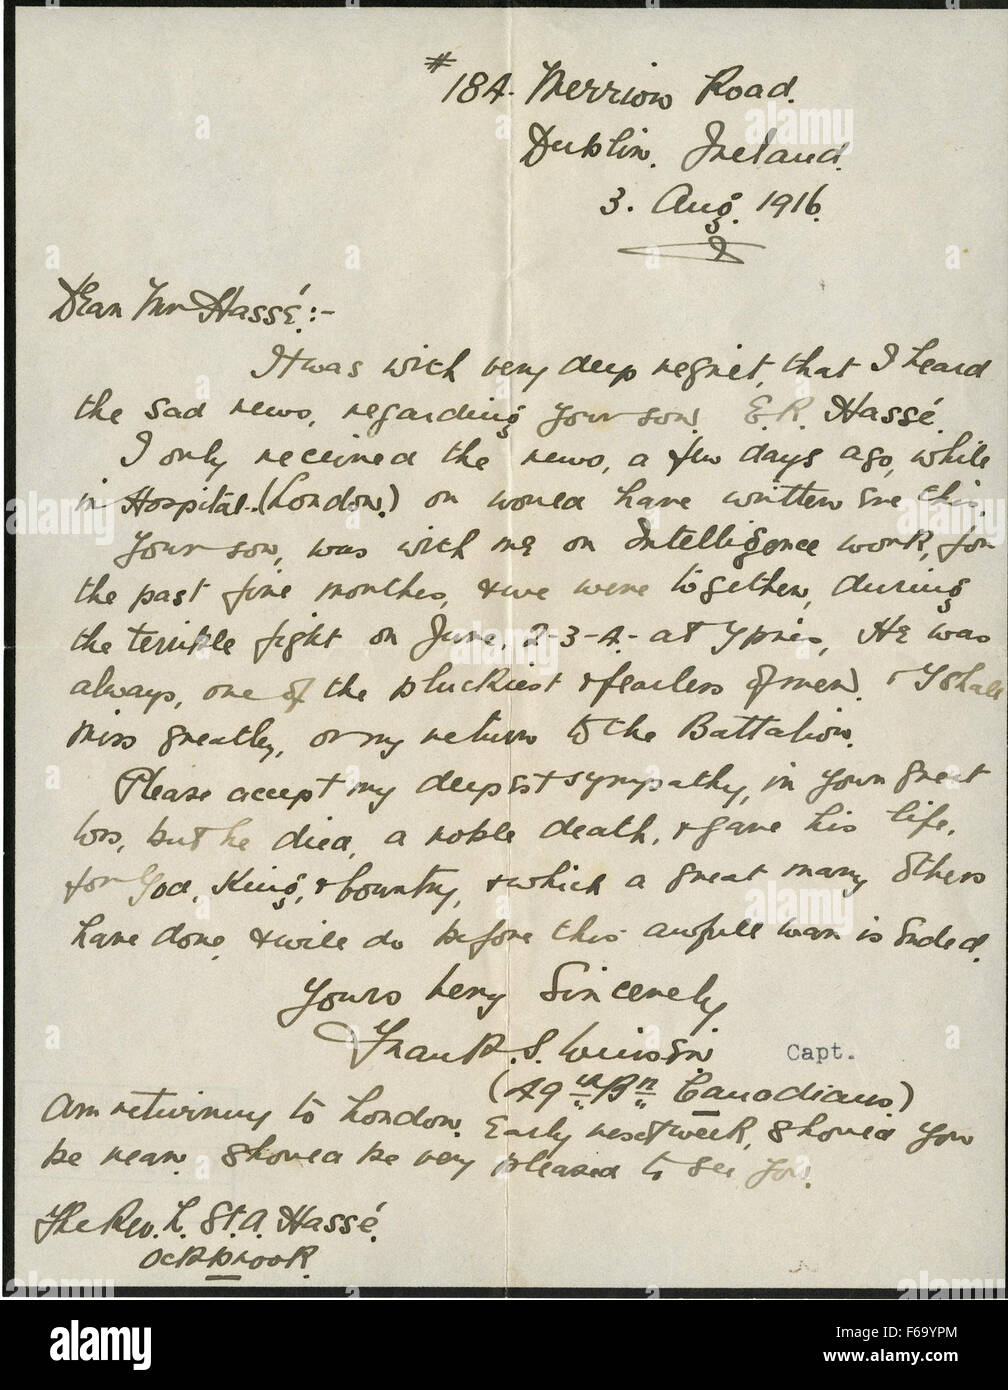 # 184. Merrion Road.
Dublin. Ireland.
3. Aug. 1916.
Dear Mr Hassé:-
It was with very deep regret, that I heard
the sad news, regarding your son. E.R. Hassé.
I only received the news, a few days ago, while
in Hospital. (London.) or would have written ere this.
Your son, was with me on Intelligence work, for
the past five months, & we were together, during
the terrible fight on June, 2-3-4. at Ypres, He was
always, one of the pluckiest & fearless of men. & I shall
miss greatly, on my return to the Battalion.
Please accept my deepest sympathy, in your great
loss, but he died, a noble death, & gave his life,
for God, King, & Country, & which a great many others
have done, & will do before this awfull war is ended.
Yours very Sincerely
Frank. S. Winser Capt.
(49th Bn Canadians.)
Am returning to London. Early next week, should you
be near. Should be very pleased to see you.
The Rev. L. St. A. Hassé.
Ockbrook.
alamy
a
alamy
Image ID: F69YPM
www.alamy.com